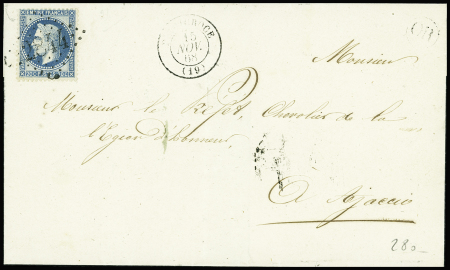 EMPIRE FRANÇAIS
15
AOU.
68
(19)
Monsieur
Monsieur le Préfet, Chevalier de la
légion d'honneur
A Ajaccio
280-